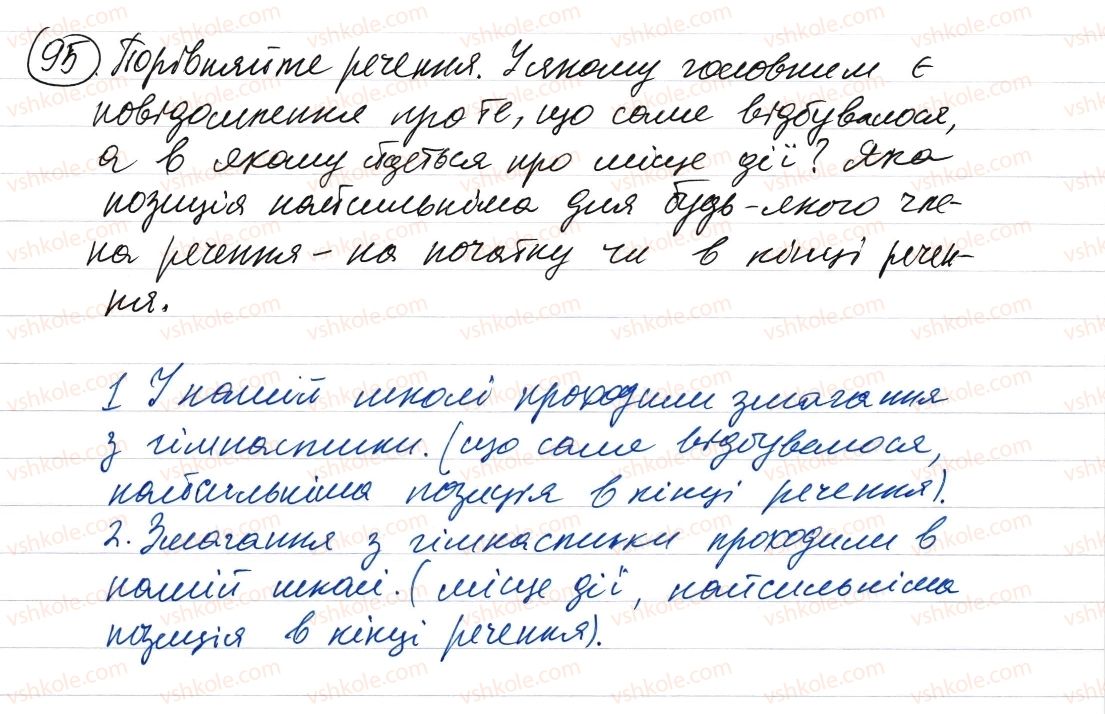 95. Порівняйте речення. У якому головним є
повідомлення про те, що саме відбувалося,
а в якому йдеться про місце дії? Яка
позиція найсильніша для будь-якого чле-
на речення - на початку чи в кінці речен-
ня.
1 У нашій школі проходили змагання
з гімнастики. (що саме відбувалося,
найсильніша позиція в кінці речення).
2. Змагання з гімнастики проходили в
нашій школі. (місце дії, найсильніша
позиція в кінці речення).